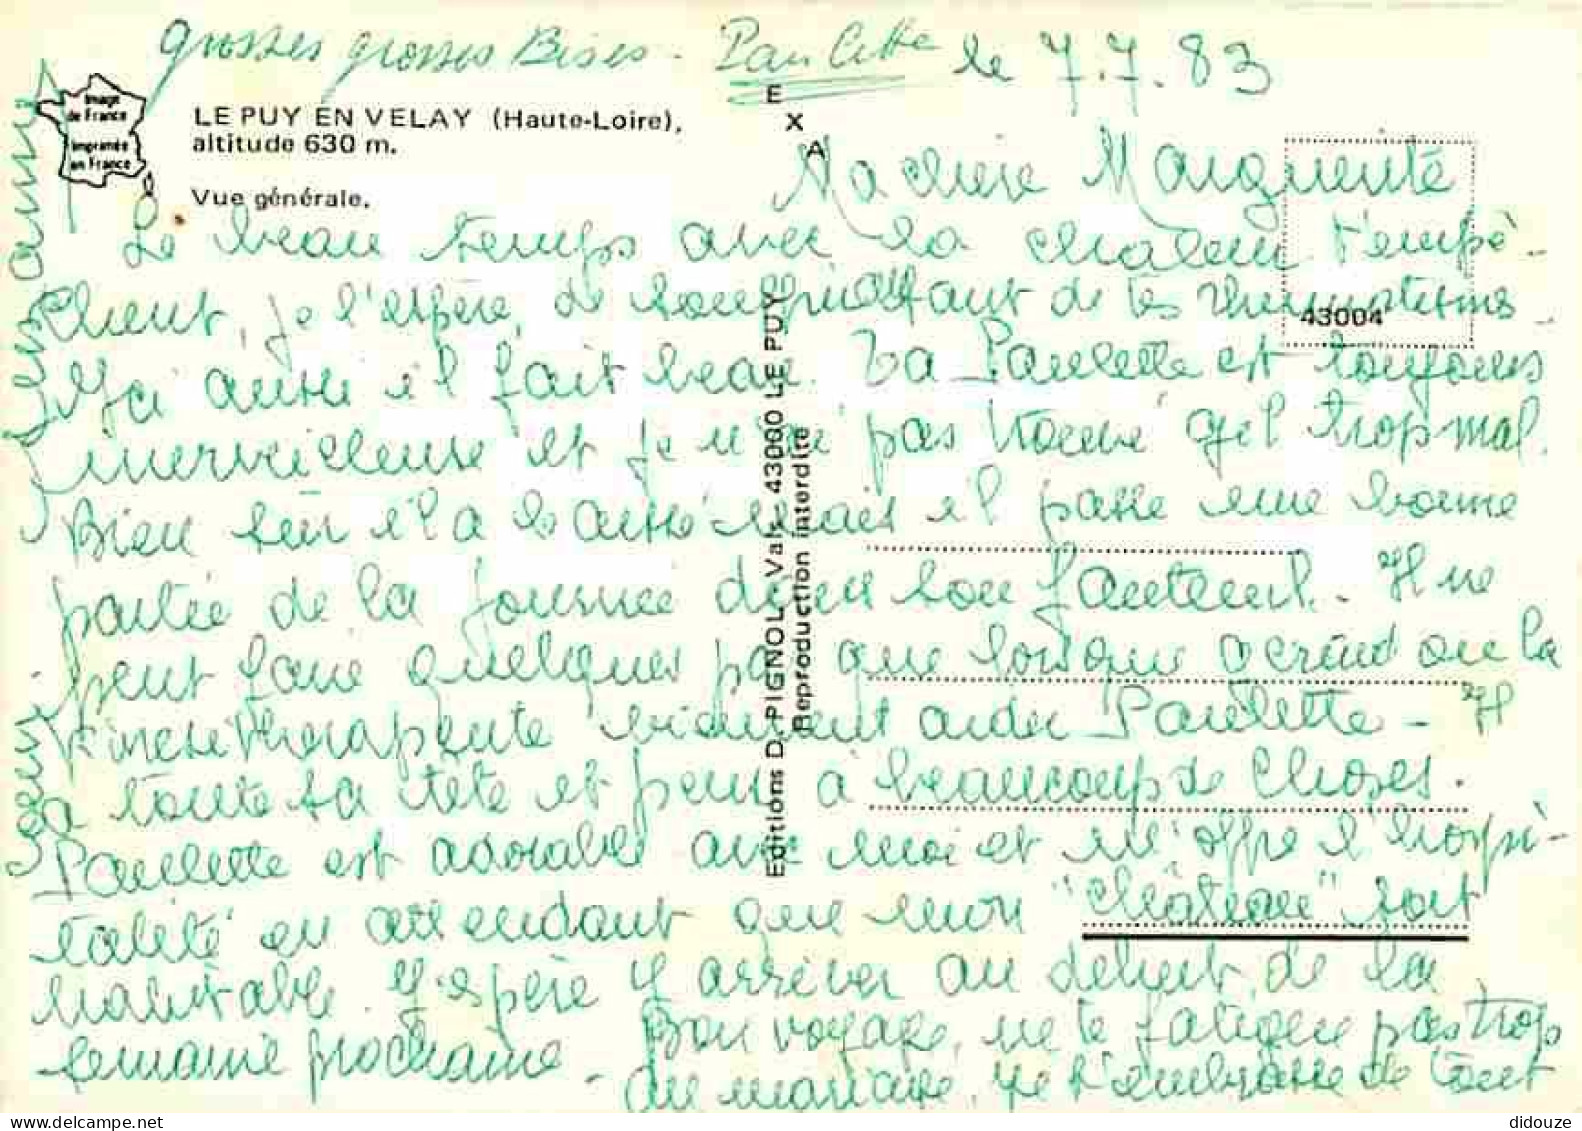 grosses grosses Bises - Paulette le 7.7.83
Image
de France
Imprimée
en France
LE PUY EN VELAY (Haute-Loire),
altitude 630 m.
Vue générale.
E
X
A
43004
Editions D. PIGNOL Vals 43000 LE PUY
Reproduction interdite
Ma chère Marguerite
Le beau temps avec la chaleur t'empê-
chent, je l'espère, de souffrir de tes rhumatismes -
Ici aussi il fait beau. Ta Paulette est toujours
merveilleuse et je n'ai pas trouvé qu'il trop mal.
Bien sûr il a baissé mais il passe une bonne
partie de la journée dans son fauteuil - Il ne
peut faire quelques pas que lorsque ou la
kinésithérapeute viennent aider Paulette - Il
a toute sa tête et pense à beaucoup de choses.
Paulette est adorable avec moi et m'offre l'hospi-
talité en attendant que mon "château" soit
habitable. J'espère y arriver au début de la
semaine prochaine - Bon voyage, ne te fatigue pas trop
au mariage. Je t'embrasse de tout
didouze